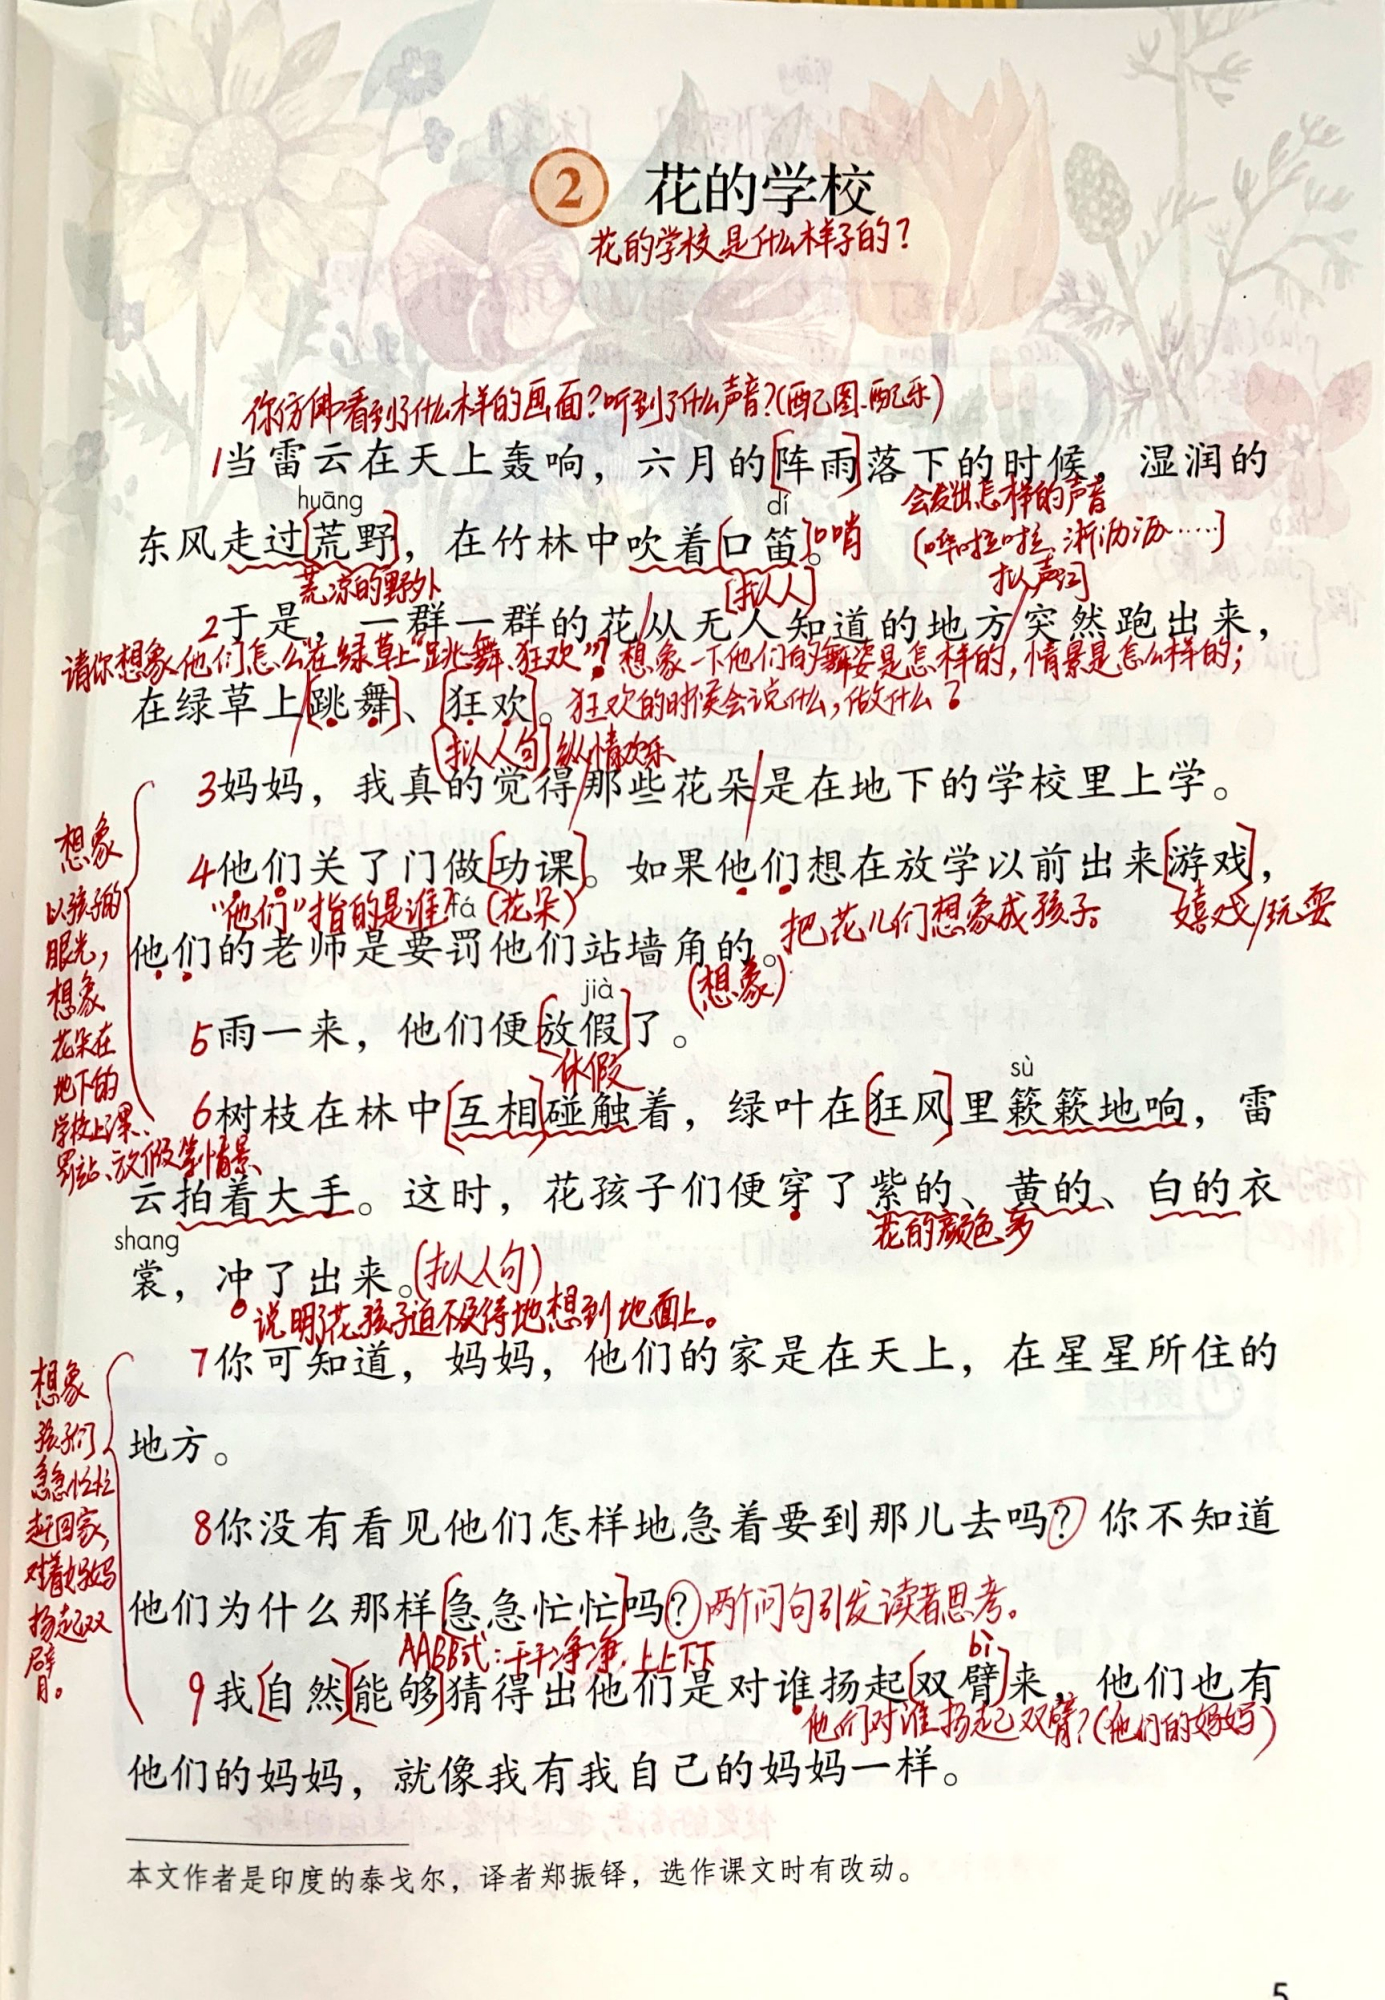 2 花的学校
花的学校是什么样子的？
你仿佛看到了什么样的画面？听到了什么声音？(配图、配乐)
1当雷云在天上轰响，六月的[阵雨]落下的时候，湿润的
huāng dí
会发出怎样的声音
东风走过[荒野]，在竹林中吹着[口笛]。口哨
(哗啦啦、淅沥沥……)
荒凉的野外
[拟人]
拟声词
2于是，一群一群的花/从无人知道的地方/突然跑出来，
请你想象他们怎么“在绿草上”跳舞、狂欢”？想象一下他们的舞姿是怎样的，情景是怎么样的；
在绿草上[跳舞]、[狂欢]。狂欢的时候会说什么，做什么？
[拟人句]纵情欢乐
3妈妈，我真的觉得/那些花朵/是在地下的学校里上学。
4他们关了门做[功课]。如果他们想在放学以前出来[游戏]，
“他们”指的是谁？(花朵)
fá
把花儿们想象成孩子。
嬉戏/玩耍
他们的老师是要罚他们站墙角的。
(想象)
jià
5雨一来，他们便[放假]了。
休假
想象
以孩子的
眼光，
想象
花朵在
地下的
学校上课、
罚站、放假等情景
sù
6树枝在林中[互相]碰触着，绿叶在[狂风]里簌簌地响，雷
云拍着大手。这时，花孩子们便穿了紫的、黄的、白的衣
花的颜色多
shang
裳，冲了出来。(拟人句)
说明了花孩子迫不及待地想到地面上。
7你可知道，妈妈，他们的家是在天上，在星星所住的
地方。
8你没有看见他们怎样地急着要到那儿去吗？你不知道
他们为什么那样[急急忙忙]吗？两个问句引发读者思考。
AABB式：干干净净、上上下下
bì
9我[自然][能够]猜得出他们是对谁扬起[双臂]来，他们也有
他们对谁扬起双臂？(他们的妈妈)
他们的妈妈，就像我有我自己的妈妈一样。
想象
孩子们
急急忙忙
赶回家，
对着妈妈
扬起双
臂。
本文作者是印度的泰戈尔，译者郑振铎，选作课文时有改动。
5